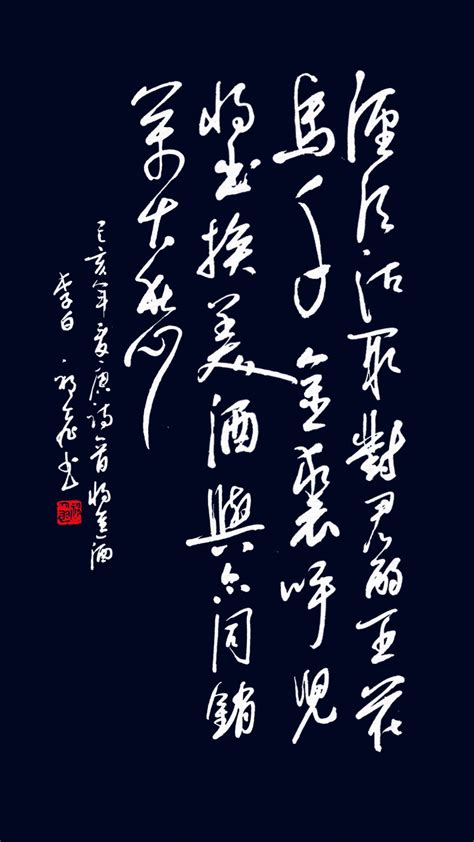 径须沽取對君酌五花
馬千金裘呼兒
将出换美酒與尔同銷
萬古愁
己亥年夏唐詩一首将進酒
李白 书